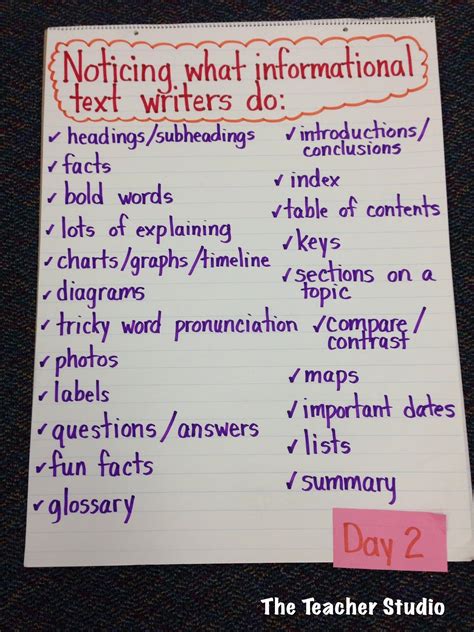 Noticing what informational
text writers do:
✓ headings/subheadings
✓ facts
✓ bold words
✓ lots of explaining
✓ charts/graphs/timeline
✓ diagrams
✓ tricky word pronunciation
✓ photos
✓ labels
✓ questions/answers
✓ fun facts
✓ glossary
✓ introductions/
conclusions
✓ index
✓ table of contents
✓ keys
✓ sections on a
topic
✓ compare/
contrast
✓ maps
✓ important dates
✓ lists
✓ summary
Day 2
The Teacher Studio